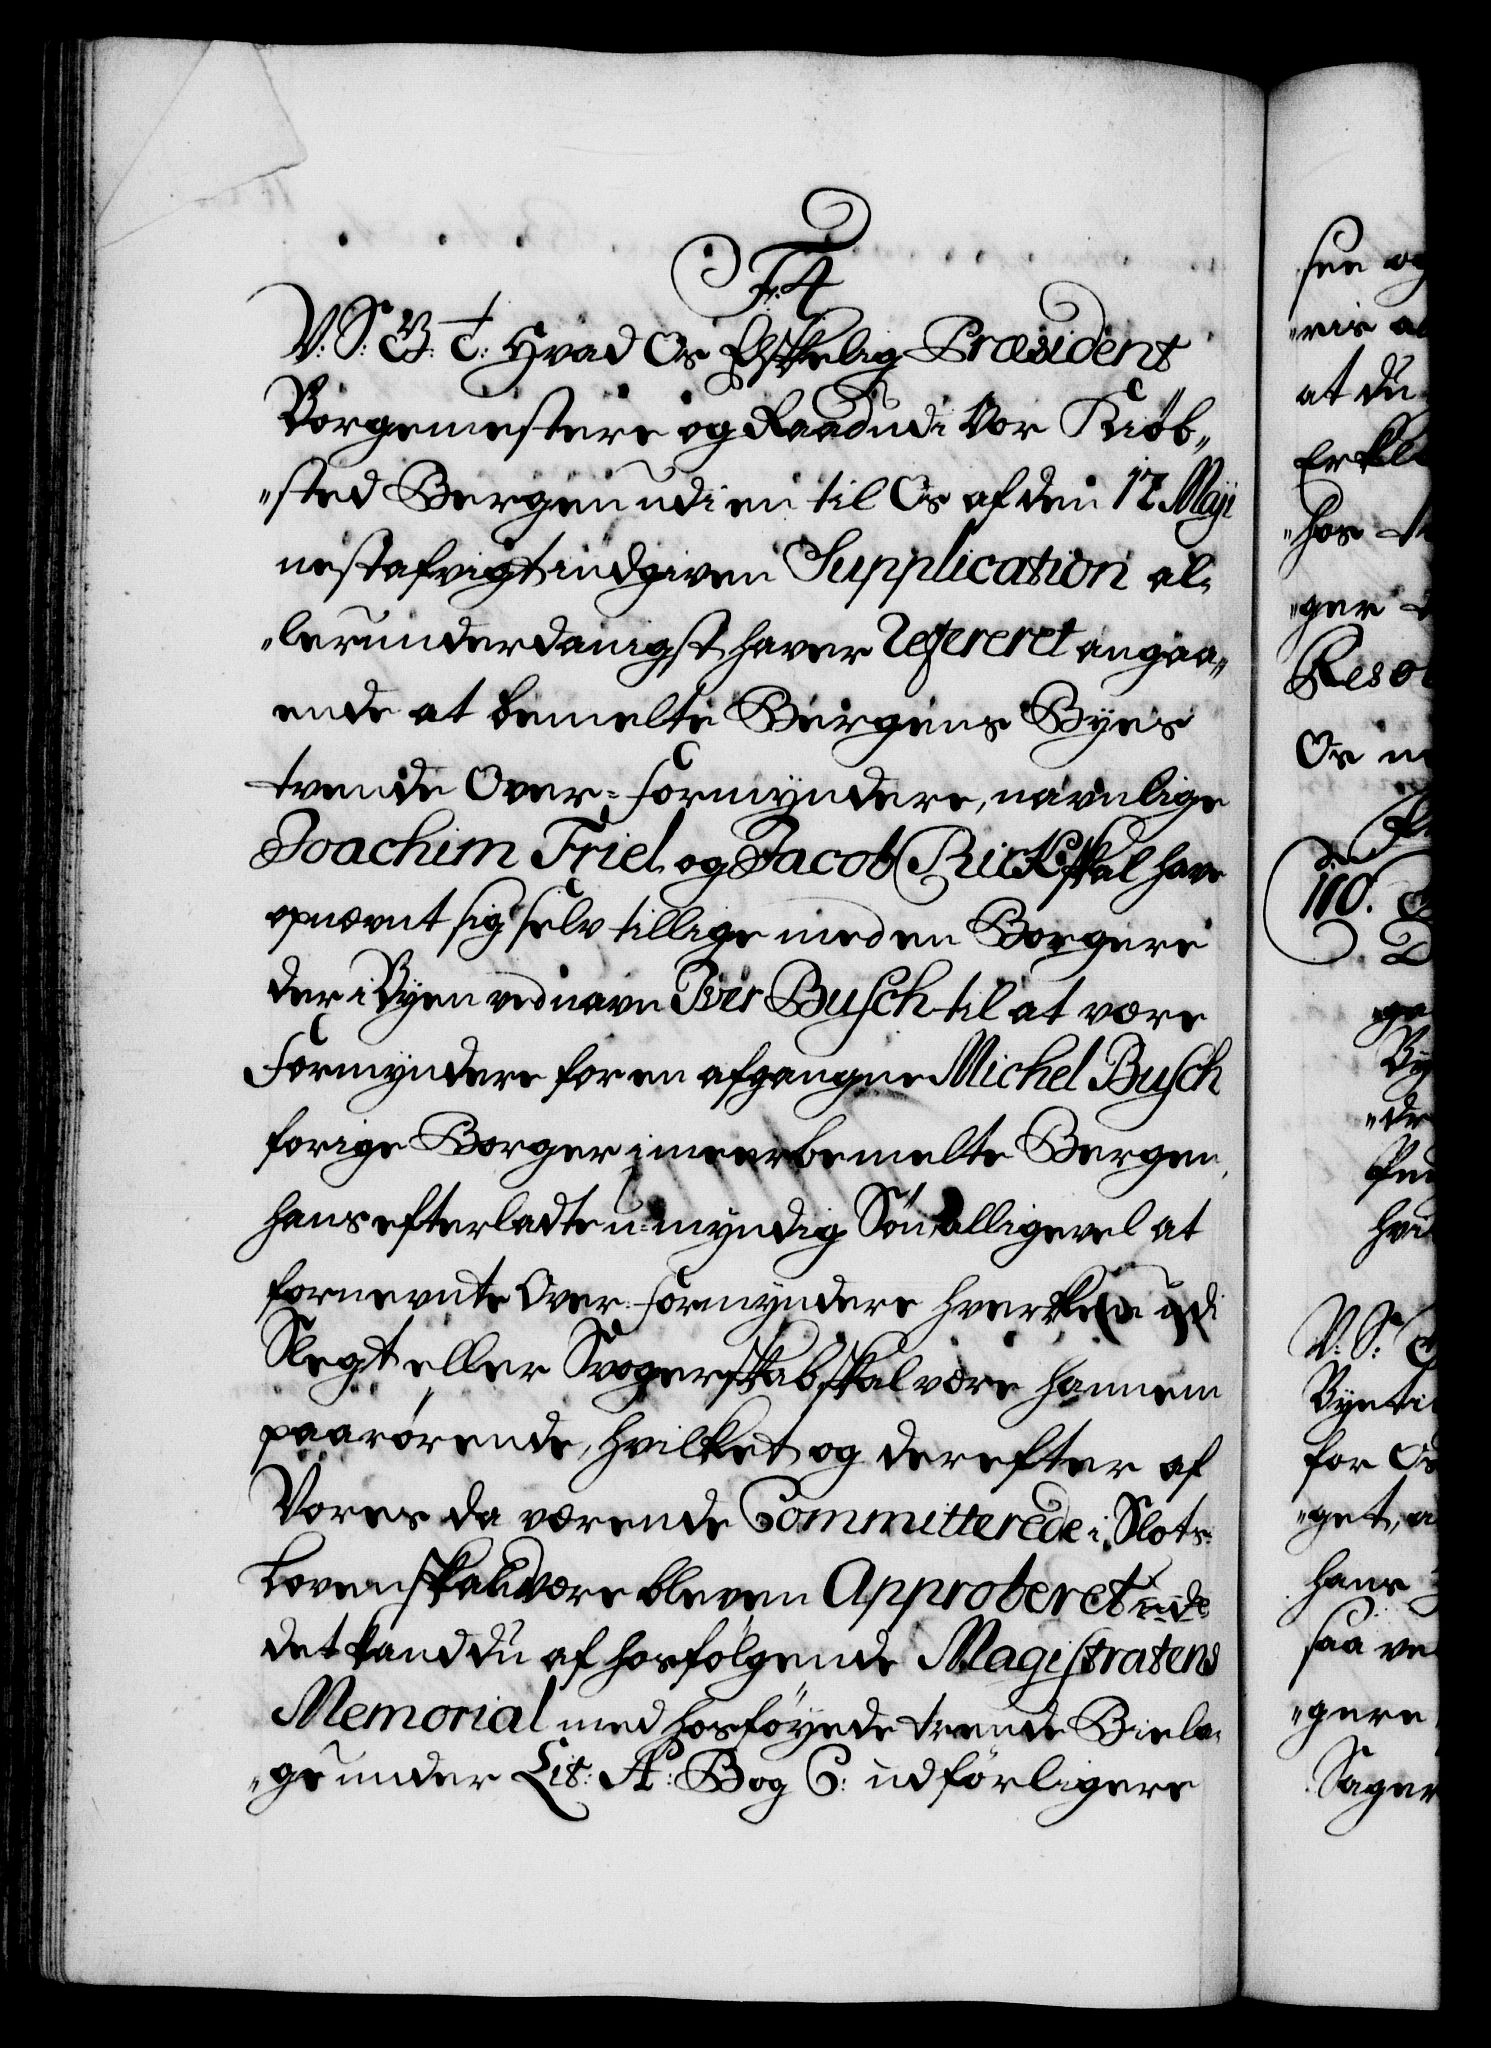 F. 4
V: S: G: T: Hvad Os Elskelig Præsident
Borgemestere og Raad udi Vor Kiøb„
„sted Bergen udi en til Os af den 17 Maji
nestafvigt indgiven Supplication al„
„lerunderdanigst haver Refereret angaa„
ende at bemelte Bergens Byes
tvende Over-Formyndere, navnlige
Joachim Friel og Jacob Rick skal have
opnævnt sig selv tillige med en Borgere
der i Byen ved navn Iver Busch til at være
Formyndere for en afgangne Michel Busch
forige Borger i meerbemelte Bergen,
hans efterladte u-myndig Søn, alligevel at
fornevnte Over-Formyndere hverken udi
Slegt eller Svogerskab skal være hannem
paarørende, hvilket og derefter af
Vores da værende Committerede i Slots-
Loven skal være bleven Approberet,
det kand du af hosfølgende Magistratens
Memorial med hosføyede trende Biela„
„ge under Lit: A: B og C: udførligere
see og
at du
„hos
„ger
Os
110.
V: S:
for Os
„get, a
hans
saa ve
„gere
Sager